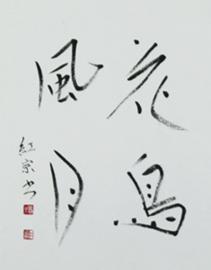 花鳥
風月
紅宗书